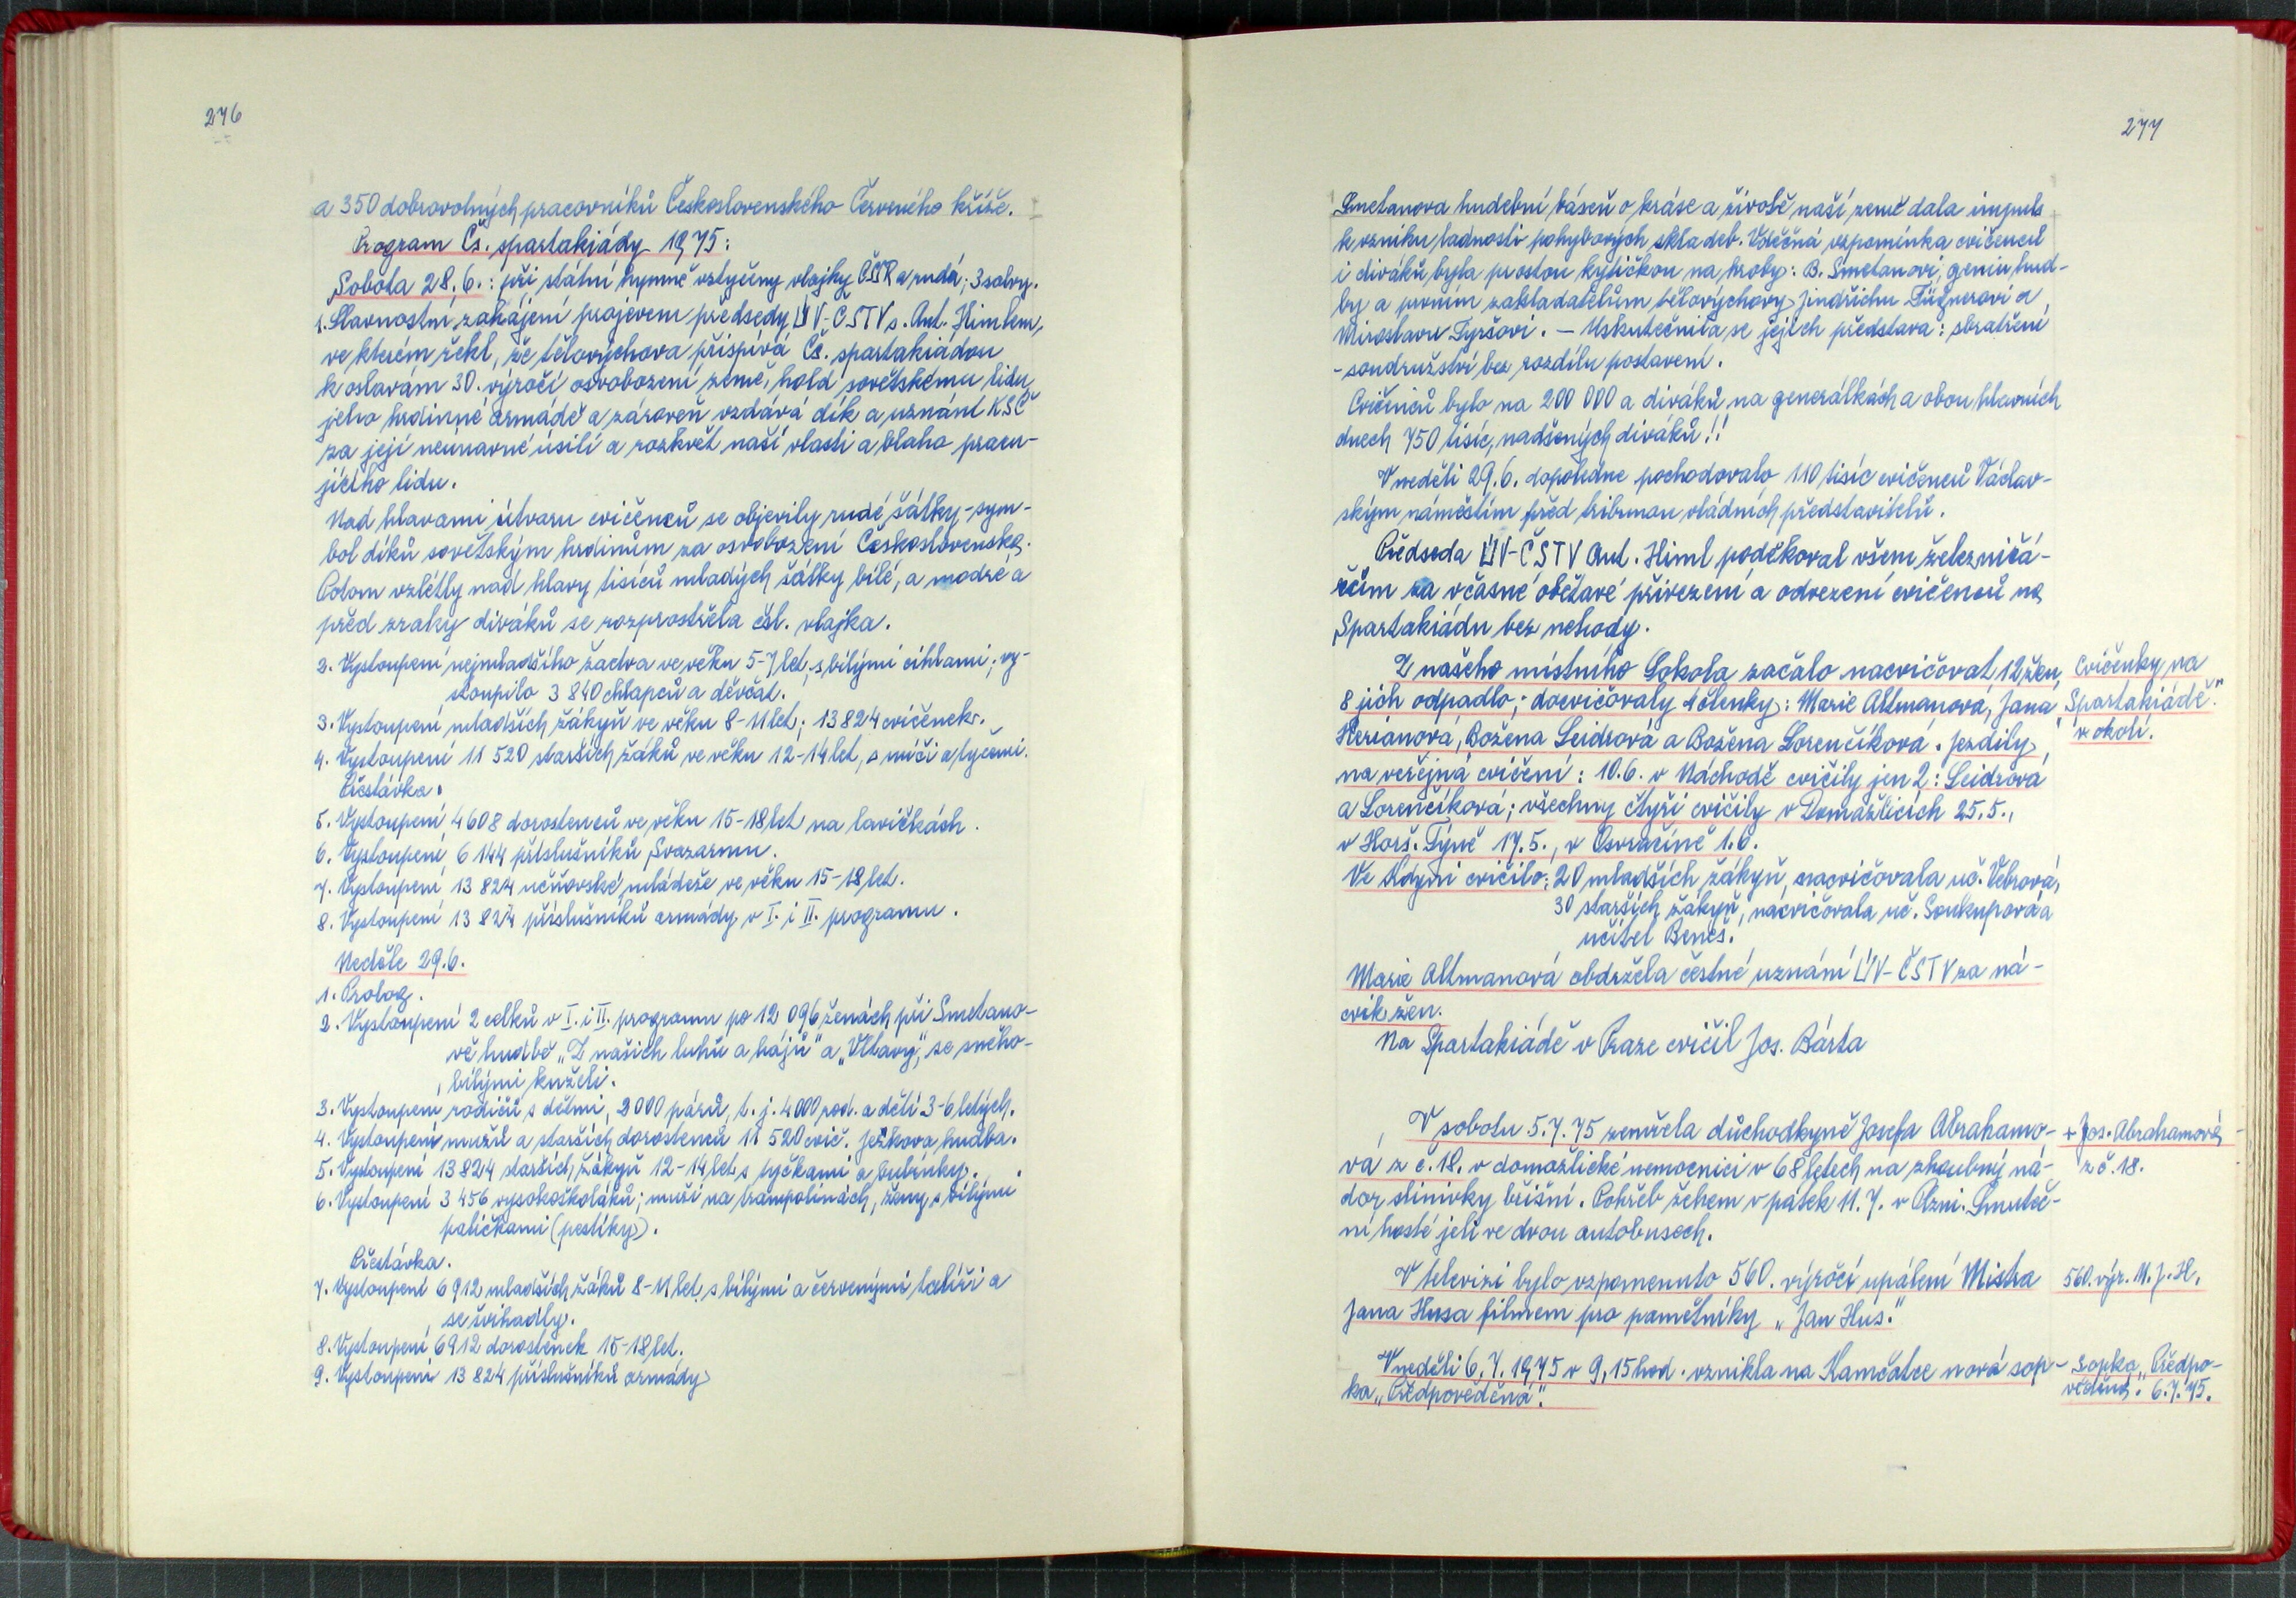 276
a 350 dobrovolných pracovníků Československého Červeného kříže.
Program Čs. spartakiády 1975:
Sobota 28.6.: při státní hymně vztyčeny vlajky ČSSR a rudá; 3 salvy.
1. Slavnostní zahájení projevem předsedy ÚV-ČSTV s. Ant. Himlem,
ve kterém řekl, že tělovýchova přispívá Čs. spartakiádou
k oslavám 30. výročí osvobození země, hold sovětskému lidu,
jeho hrdinné armádě a zároveň vzdává dík a uznání KSČ
za její neúnavné úsilí a rozkvět naší vlasti a blaho pracu-
jícího lidu.
Nad hlavami útvaru cvičenců se objevily rudé šátky - sym-
bol díků sovětským hrdinům za osvobození Československa.
Potom vzlétly nad hlavy tisíců mladých šátky bílé, a modré a
před zraky diváků se rozprostřela čsl. vlajka.
2. Vystoupení nejmladšího žactva ve věku 5-7 let, s bílými cihlami; vy-
stoupilo 3 840 chlapců a děvčat.
3. Vystoupení mladších žákyň ve věku 8-11 let; 13 824 cvičenek.
4. Vystoupení 11 520 starších žáků ve věku 12-14 let, s míči a tyčemi.
Přestávka.
5. Vystoupení 4608 dorostenců ve věku 15-18 let na lavičkách.
6. Vystoupení 6 144 příslušníků Svazarmu.
7. Vystoupení 13 824 učňovské mládeže ve věku 15-18 let.
8. Vystoupení 13 824 příslušníků armády v I. i II. programu.
Neděle 29.6.
1. Prolog.
2. Vystoupení 2 celků v I. i II. programu po 12 096 ženách při Smetano-
vě hudbě „Z našich luhů a hájů" a „Vltavy", se sněho-
bílými kuželi.
3. Vystoupení rodičů s dětmi, 2000 párů, t. j. 4000 rod. a dětí 3-6 letých.
4. Vystoupení mužů a starších dorostenců 11 520 cvič. Ježkova hudba.
5. Vystoupení 13 824 starších žákyň 12-14 let s tyčkami a bubínky.
6. Vystoupení 3 456 vysokoškoláků; muži na trampolínách, ženy s bílými
paličkami (pestíky).
Přestávka.
7. Vystoupení 6912 mladších žáků 8-11 let s bílými a červenými talíři a
se švihadly.
8. Vystoupení 6912 dorostenek 15-18 let.
9. Vystoupení 13 824 příslušníků armády
277
Smetanova hudební báseň o kráse a životě naší země dala impuls
k vzniku ladnosti pohybových skladeb. Vděčná vzpomínka cvičenců
i diváků byla prostou kytičkou na hroby: B. Smetanovi, geniu hud-
by a prvním zakladatelům tělovýchovy Jindřichu Fügnerovi a
Miroslavu Tyršovi. - Uskutečnila se jejich představa: sbratření
- soudružství bez rozdílu postavení.
Cvičenců bylo na 200 000 a diváků na generálkách a obou hlavních
dnech 750 tisíc, nadšených diváků!!
V neděli 29.6. dopoledne pochodovalo 110 tisíc cvičenců Václav-
ským náměstím před tribunou vládních představitelů.
Předseda ÚV-ČSTV Ant. Himl poděkoval všem železničá-
řům za včasné obětavé přivezení a odvezení cvičenců na
Spartakiádu bez nehody.
Z našeho místního Sokola začalo nacvičovat 12 žen,
8 jich odpadlo; docvičovaly 4 členky: Marie Altmanová, Jana
Heriánová, Božena Leidrová a Božena Lorenčíková. Jezdily
na veřejná cvičení: 10.6. v Náchodě cvičily jen 2: Leidrová
a Lorenčíková; všechny čtyři cvičily v Domažlicích 25.5.,
v Horš. Týně 17.5., v Osvračíně 1.6.
Ve Kdyni cvičilo: 20 mladších žákyň, nacvičovala uč. Vebrová,
30 starších žákyň, nacvičovala uč. Soukupová a
učitel Beneš.
Marie Altmanová obdržela čestné uznání ÚV-ČSTV za ná-
cvik žen.
Na Spartakiádě v Praze cvičil Jos. Bárta
V sobotu 5.7.75 zemřela důchodkyně Josefa Abrahamo-
vá z č. 18. v domažlické nemocnici v 68 letech na zhoubný ná-
dor slinivky břišní. Pohřeb žehem v pátek 11.7. v Plzni. Smuteč-
ní hosté jeli ve dvou autobusech.
V televizi bylo vzpomenuto 560. výročí upálení Mistra
Jana Husa filmem pro pamětníky „Jan Hus."
V neděli 6.7.1975 v 9,15 hod. vznikla na Kamčatce nová sop-
ka „Předpověděná".
Cvičenky na
„Spartakiádě"
v okolí.
+ Jos. Abrahamová
z č. 18.
560. výr. M. J. H.
Sopka „Předpo-
věděná". 6.7.75.